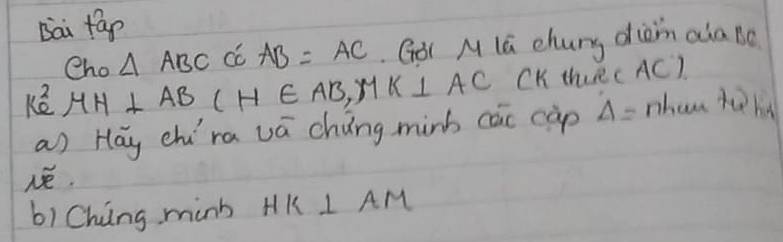 Bài tập
Cho Δ ABC có AB = AC. Gọi M là chung điểm của BC
Kẻ MH ⊥ AB (H ∈ AB, MK ⊥ AC (K thuộc AC)
a) Hãy chỉ ra và chứng minh các cặp Δ = nhau từ
vẽ.
b) Chứng minh HK ⊥ AM